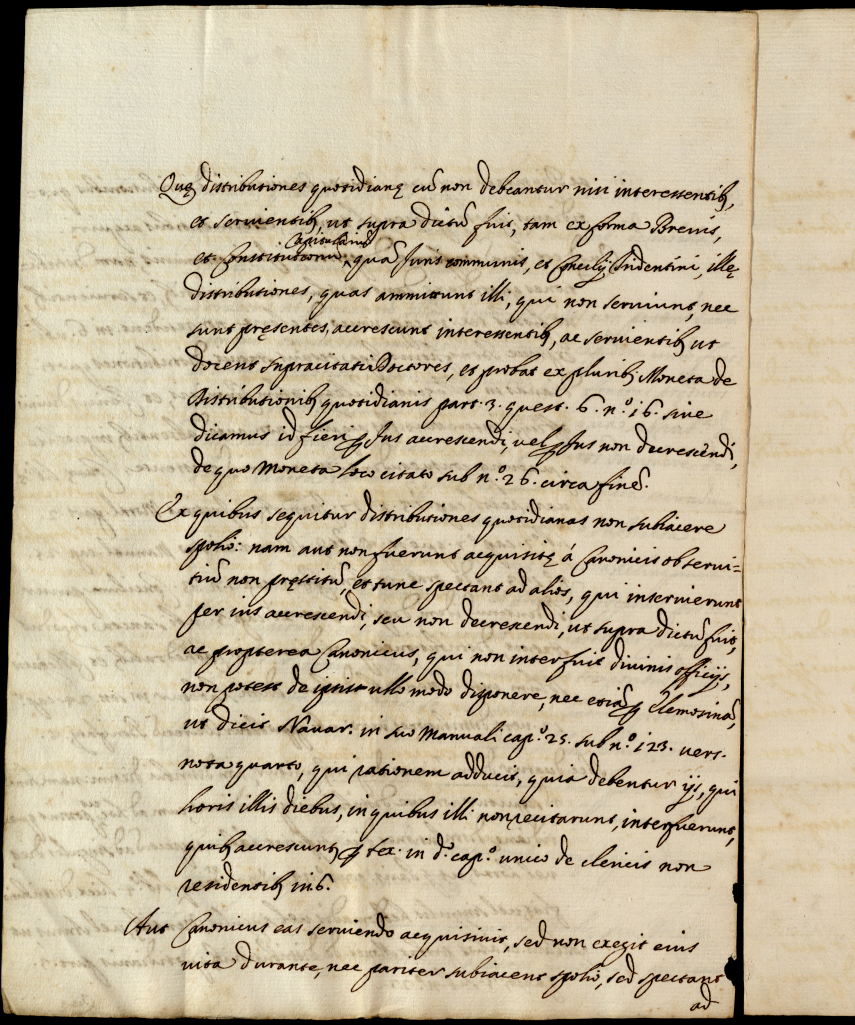 Quę distributiones quotidianę cũ non debeantur nisi interessentib9,
et seruientib9, ut supra dictũ fuit, tam ex forma Breuis,
Capitulariũ
et Constitutionũ, quã Iuris communis, et Concilij Tridentini, illę
distributiones, quas ammittunt illi, qui non seruiunt, nec
sunt pręsentes, accrescunt interessentib9, ac seruientib9 ut
docent supracitati Doctores, et probat ex plurib9 Moneta de
Distributionib9 quotidianis part. 3. quest. 6. n.º 16. siue
dicamus id fieri ꝑ Ius accrescendi, uel ꝑ Ius non decrescẽdi,
de quo Moneta loco citato sub n.º 26. circa finẽ.
Ex quibus sequitur distributiones quotidianas non subiacere
spolio: nam aut non fuerunt acquisitę á Canonicis ob serui=
tiũ non pręstitũ, et tunc spectant ad alios, qui interuierunt
per ius accrescendi, seu non decrescendi, ut supra dictũ fuit,
ac propterea Canonicus, qui non interfuit diuinis officijs,
non potest de ipsis ullo modo disponere, nec etiã ꝑ Elemosinã,
ut dicit Nauar. in suo Manuali cap.º 25. sub n.º 123. vers.
nota quarto, qui rationem adducit, quia debentur ijs, qui
horis illis diebus, in quibus illi non recitarunt, interfuerunt,
quib9 accrescunt ꝑ tex. in d.º cap.º unico de clericis non
residentib9 in 6.
Aut Canonicus eas seruiendo acquisiuit, sed non exegit eius
uita durante, nec pariter subiacent spolio, sed spectant
ad